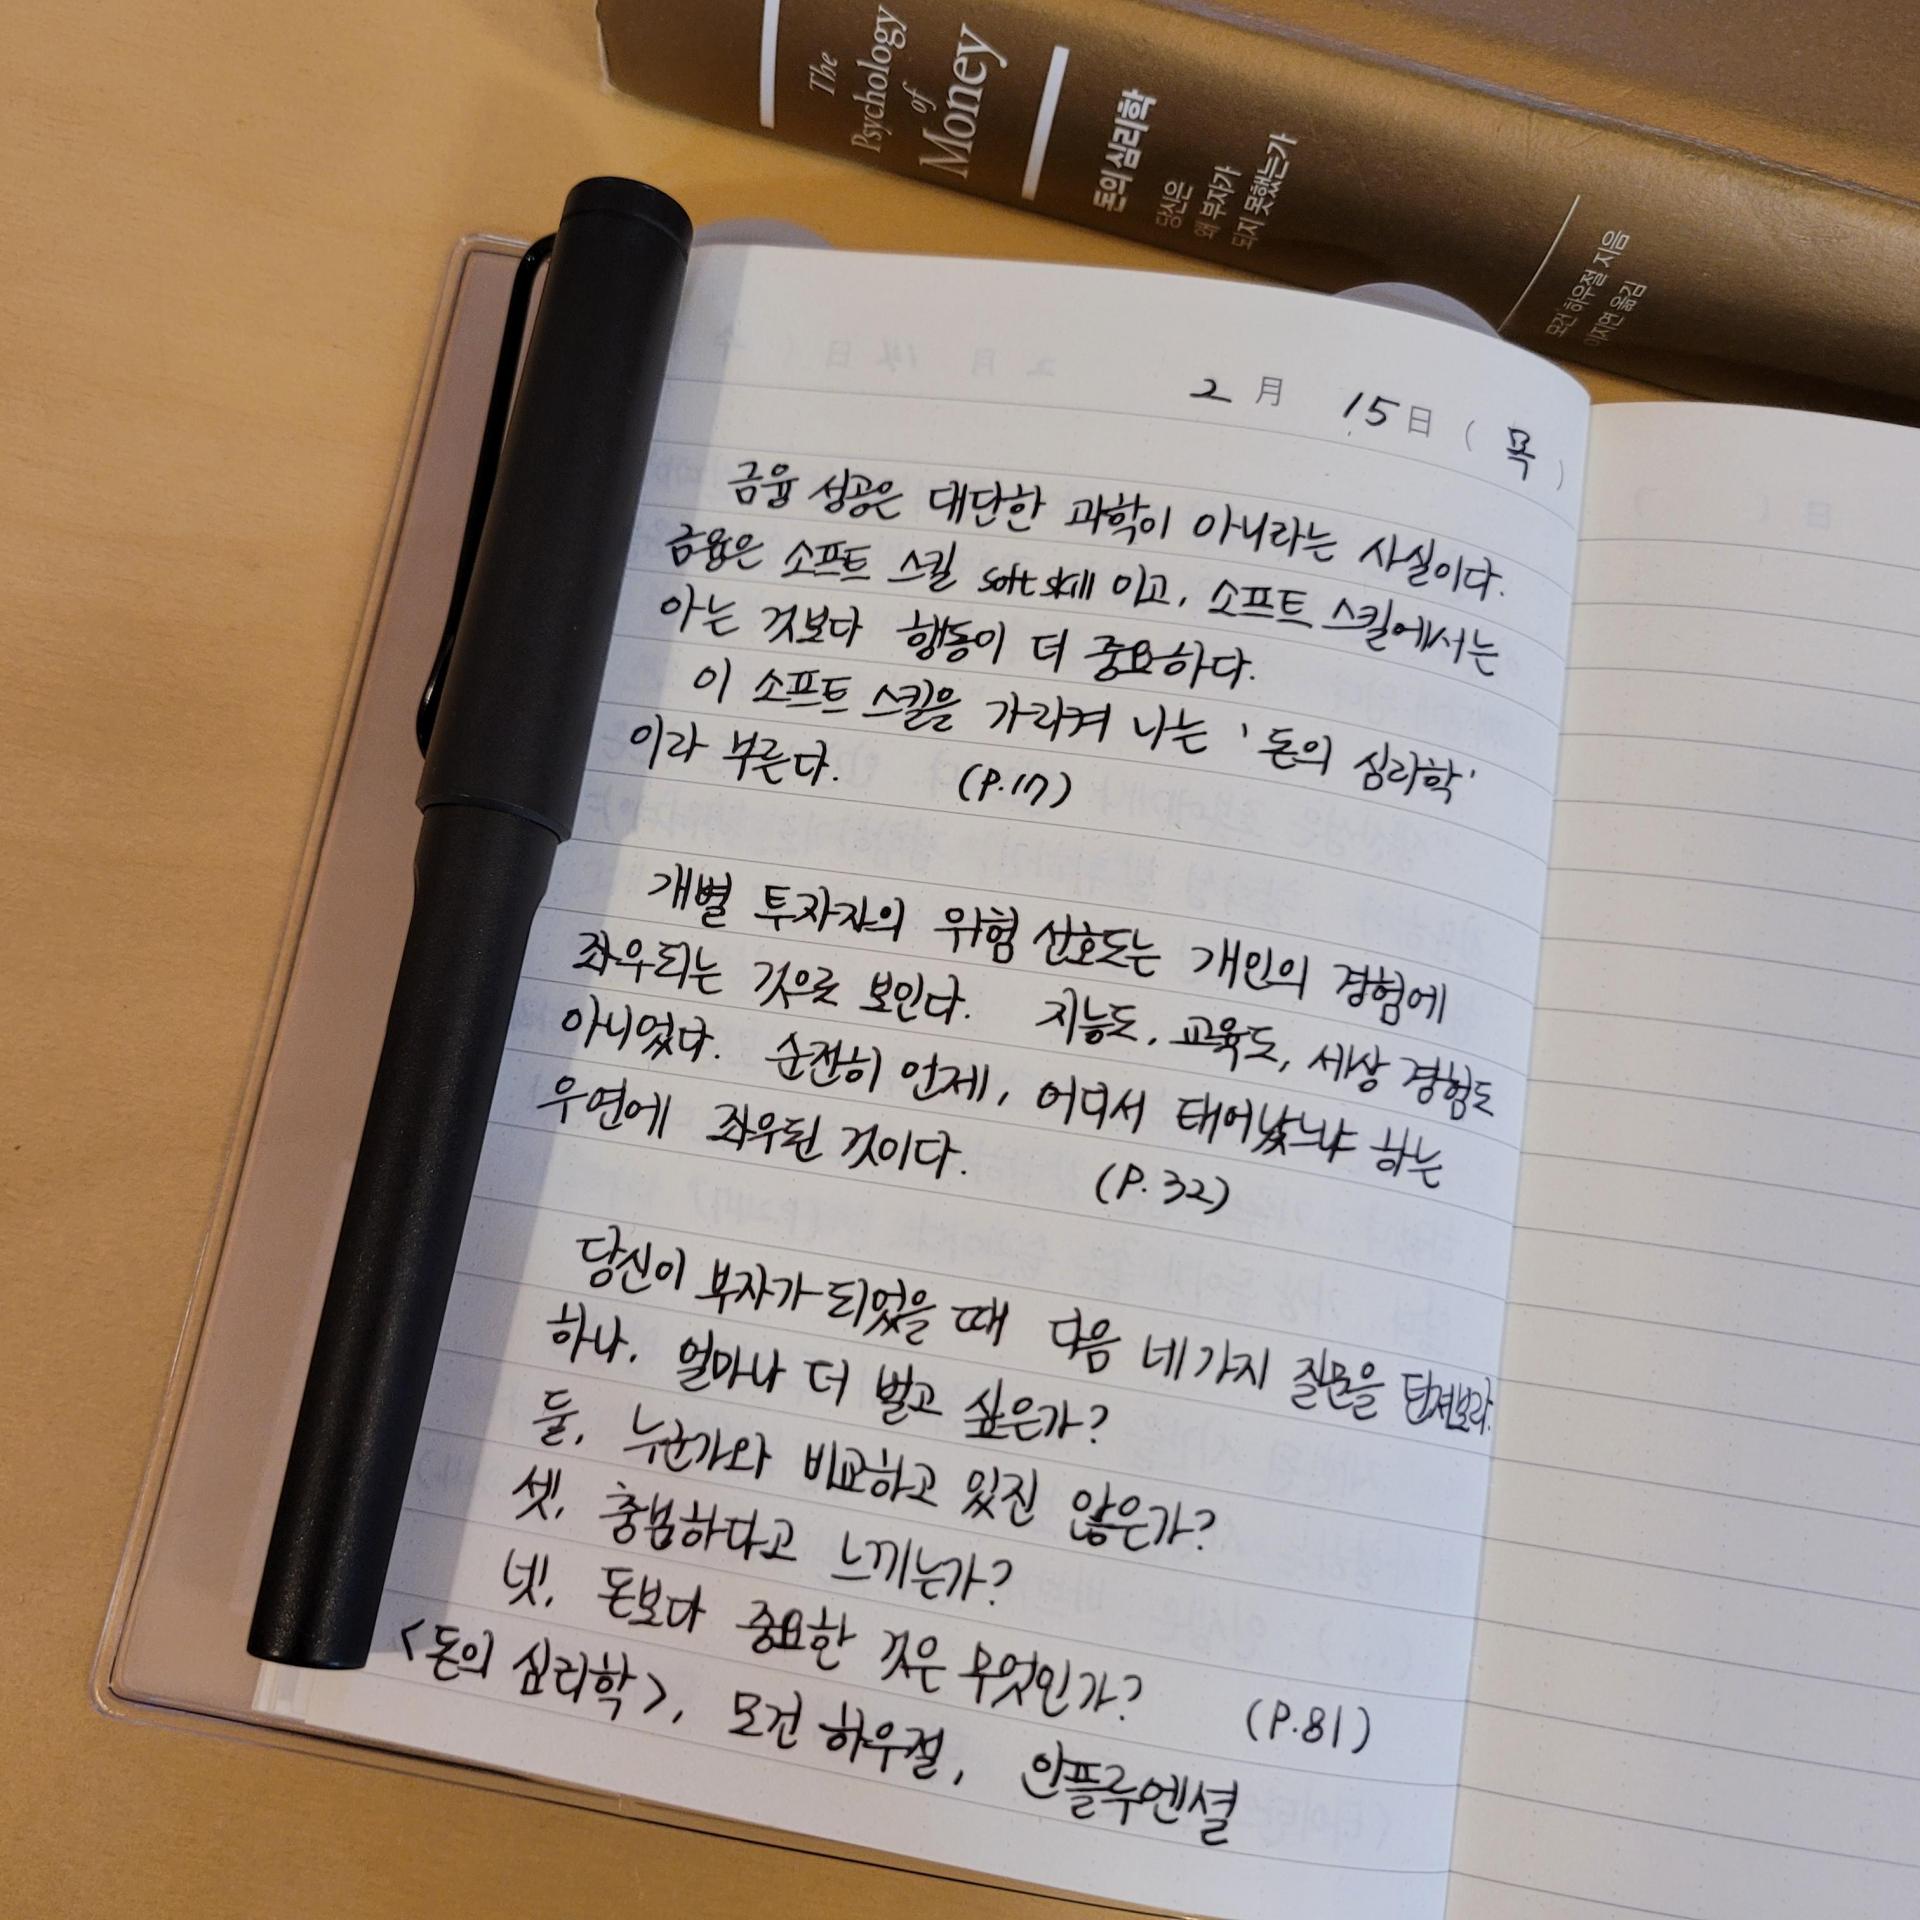 The
Psychology
of
Money
돈의 심리학
당신은
왜 부자가
되지 못했는가
모건 하우절 지음
이지연 옮김
2 月 15 日 ( 목 )
금융 성공은 대단한 과학이 아니라는 사실이다.
금융은 소프트 스킬 soft skill 이고, 소프트 스킬에서는
아는 것보다 행동이 더 중요하다.
이 소프트 스킬을 가리켜 나는 '돈의 심리학'
이라 부른다. (P.17)
개별 투자자의 위험 선호도는 개인의 경험에
좌우되는 것으로 보인다. 지능도, 교육도, 세상 경험도
아니었다. 순전히 언제, 어디서 태어났느냐 하는
우연에 좌우된 것이다. (P.32)
당신이 부자가 되었을 때 다음 네가지 질문을 던져보라.
하나, 얼마나 더 벌고 싶은가?
둘, 누군가와 비교하고 있진 않은가?
셋, 충분하다고 느끼는가?
넷, 돈보다 중요한 것은 무엇인가? (P.81)
<돈의 심리학>, 모건 하우절, 인플루엔셜